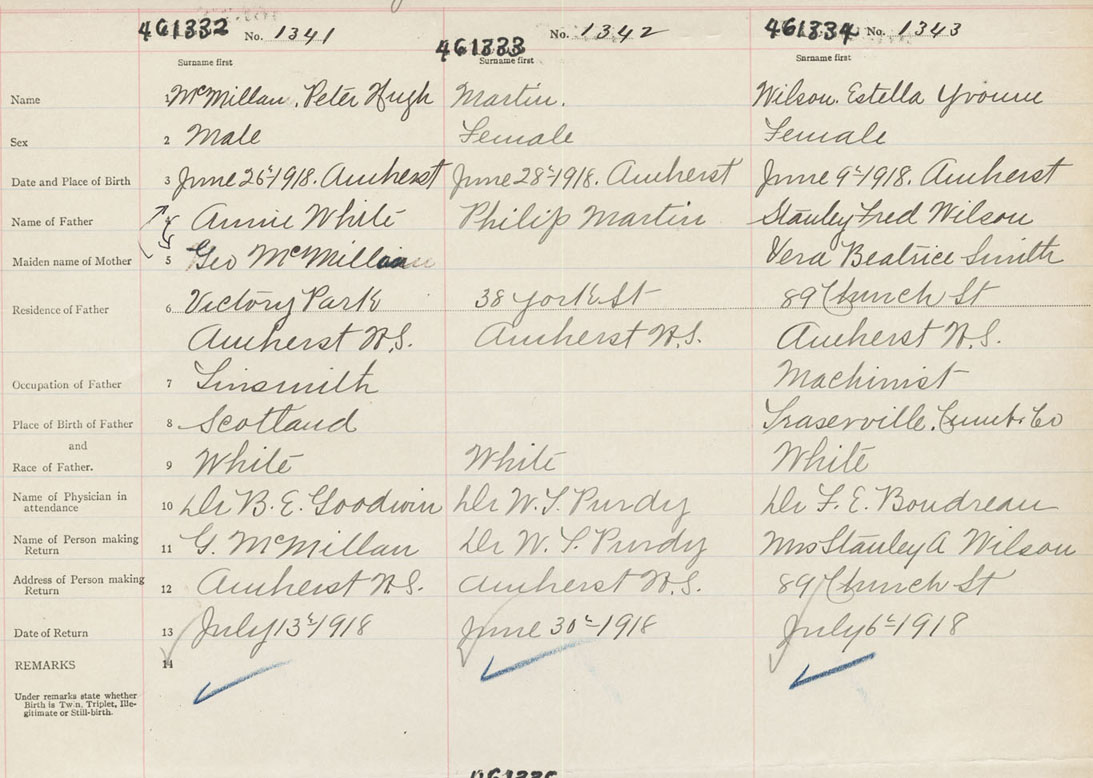 461332 No. 1341 461333 No. 1342 461334 No. 1343
Surname first Surname first Surname first
Name 1 McMillan, Peter Hugh Martin. Wilson. Estella Yvonne
Sex 2 Male Female Female
Date and Place of Birth 3 June 26th 1918. Amherst June 28th 1918. Amherst June 9th 1918. Amherst
Name of Father 4 Annie White Philip Martin Stanley Fred Wilson
Maiden name of Mother 5 Geo McMillan Vera Beatrice Smith
Residence of Father 6 Victory Park 38 York St 89 Church St
Amherst N.S. Amherst N.S. Amherst N.S.
Occupation of Father 7 Tinsmith Machinist
Place of Birth of Father 8 Scotland Fraserville, Cumb. Co
and
Race of Father. 9 White White White
Name of Physician in
attendance 10 Dr B. E. Goodwin Dr W. T. Purdy Dr F. E. Boudreau
Name of Person making
Return 11 G. McMillan Dr W. T. Purdy Mrs Stanley A Wilson
Address of Person making
Return 12 Amherst N.S. Amherst N.S. 89 Church St
Date of Return 13 July 13th 1918 June 30th 1918 July 6th 1918
REMARKS 14
Under remarks state whether
Birth is Twin, Triplet, Ille-
gitimate or Still-birth.